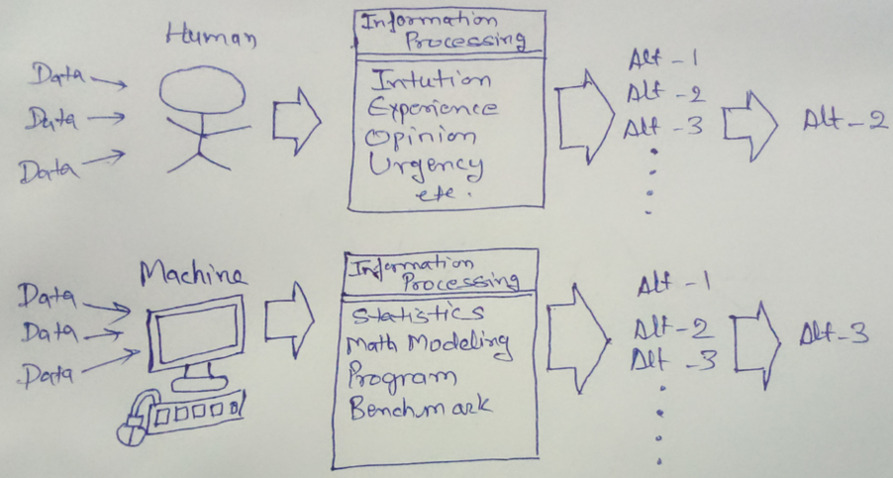 Human
Data
Data
Data
Information
Processing
Intution
Experience
Opinion
Urgency
etc.
Alt-1
Alt-2
Alt-3
Alt-2
Machine
Data
Data
Data
Information
Processing
Statistics
Math Modeling
Program
Benchmark
Alt-1
Alt-2
Alt-3
Alt-3